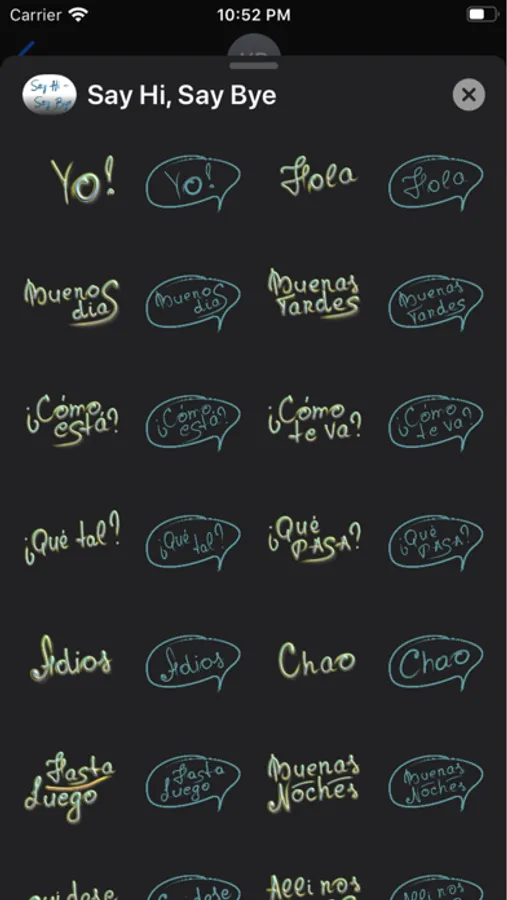 Carrier 10:52 PM
Say Hi - Say Bye
Say Hi, Say Bye
Yo! Yo! Hola Hola
Buenos Buenos Buenas Buenas
dia dia Tardes Tardes
¿Cómo ¿Cómo ¿Cómo ¿Cómo
está? está? te va? te va?
¿Qué tal? ¿Qué ¿Qué ¿Qué
tal? PASA? PASA?
Adios Adios Chao Chao
Hasta Hasta Buenas Buenas
Luego Luego Noches Noches
Alli nos Alli nos